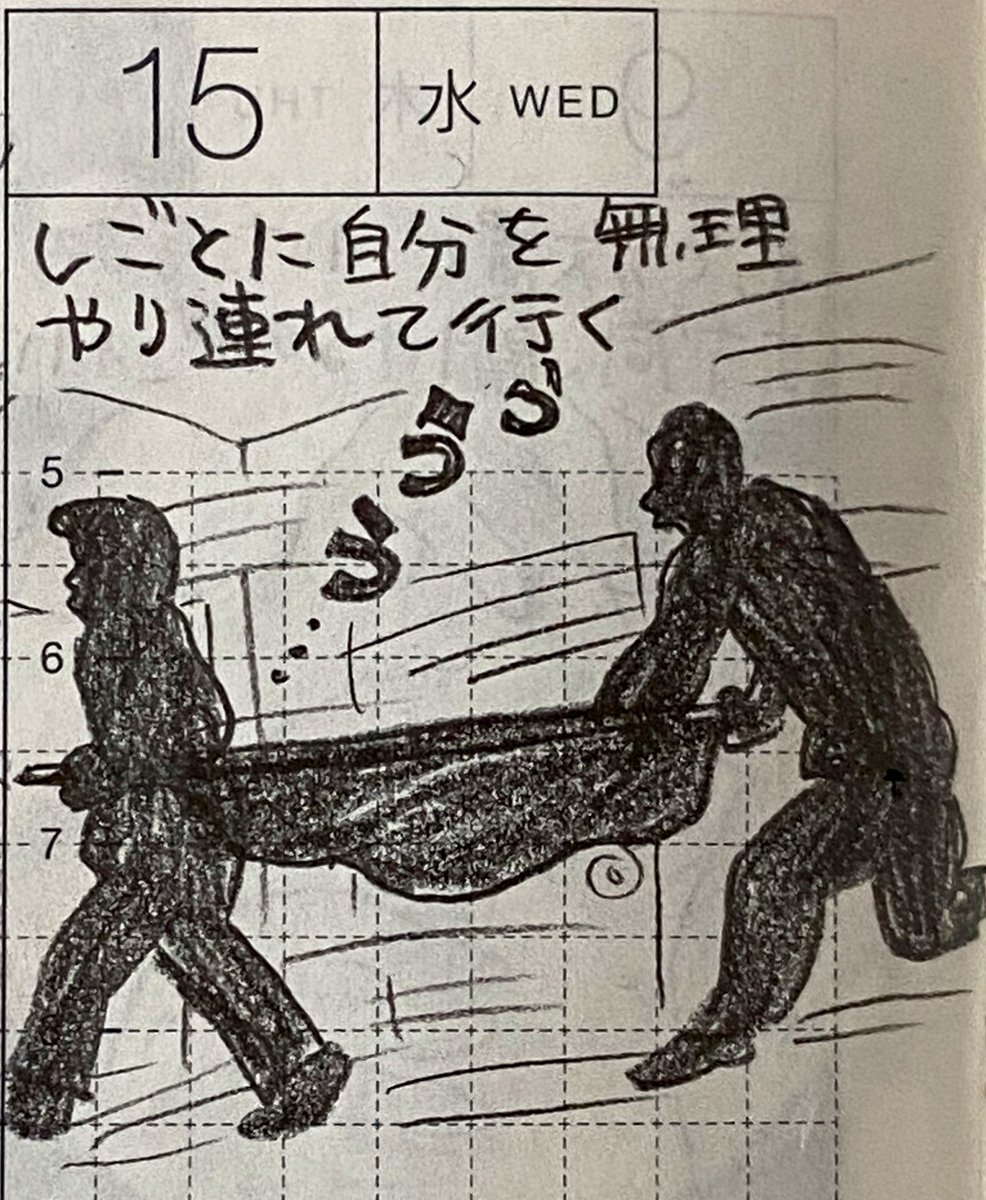 15 水 WED
しごとに自分を無理
やり連れて行く
ううう
5
6
7